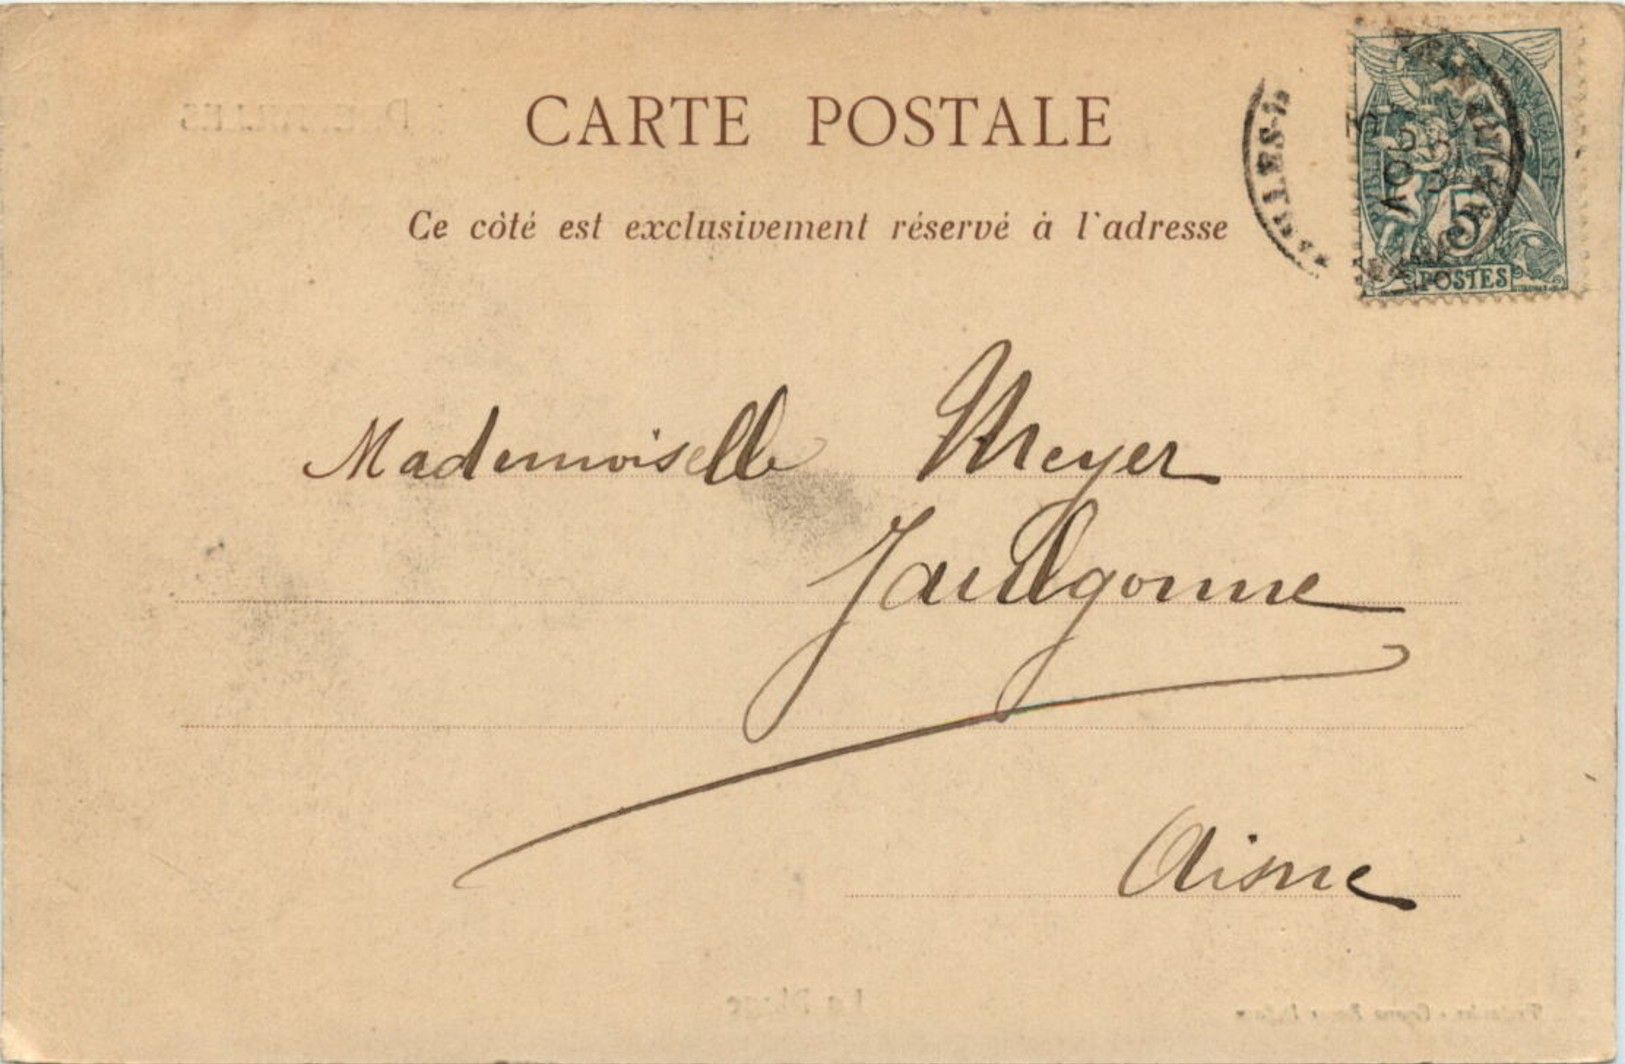 CARTE POSTALE
Ce côté est exclusivement réservé à l'adresse
5
POSTES
AOUT
Mademoiselle Meyer
Jaulgonne
Aisne
La Plage